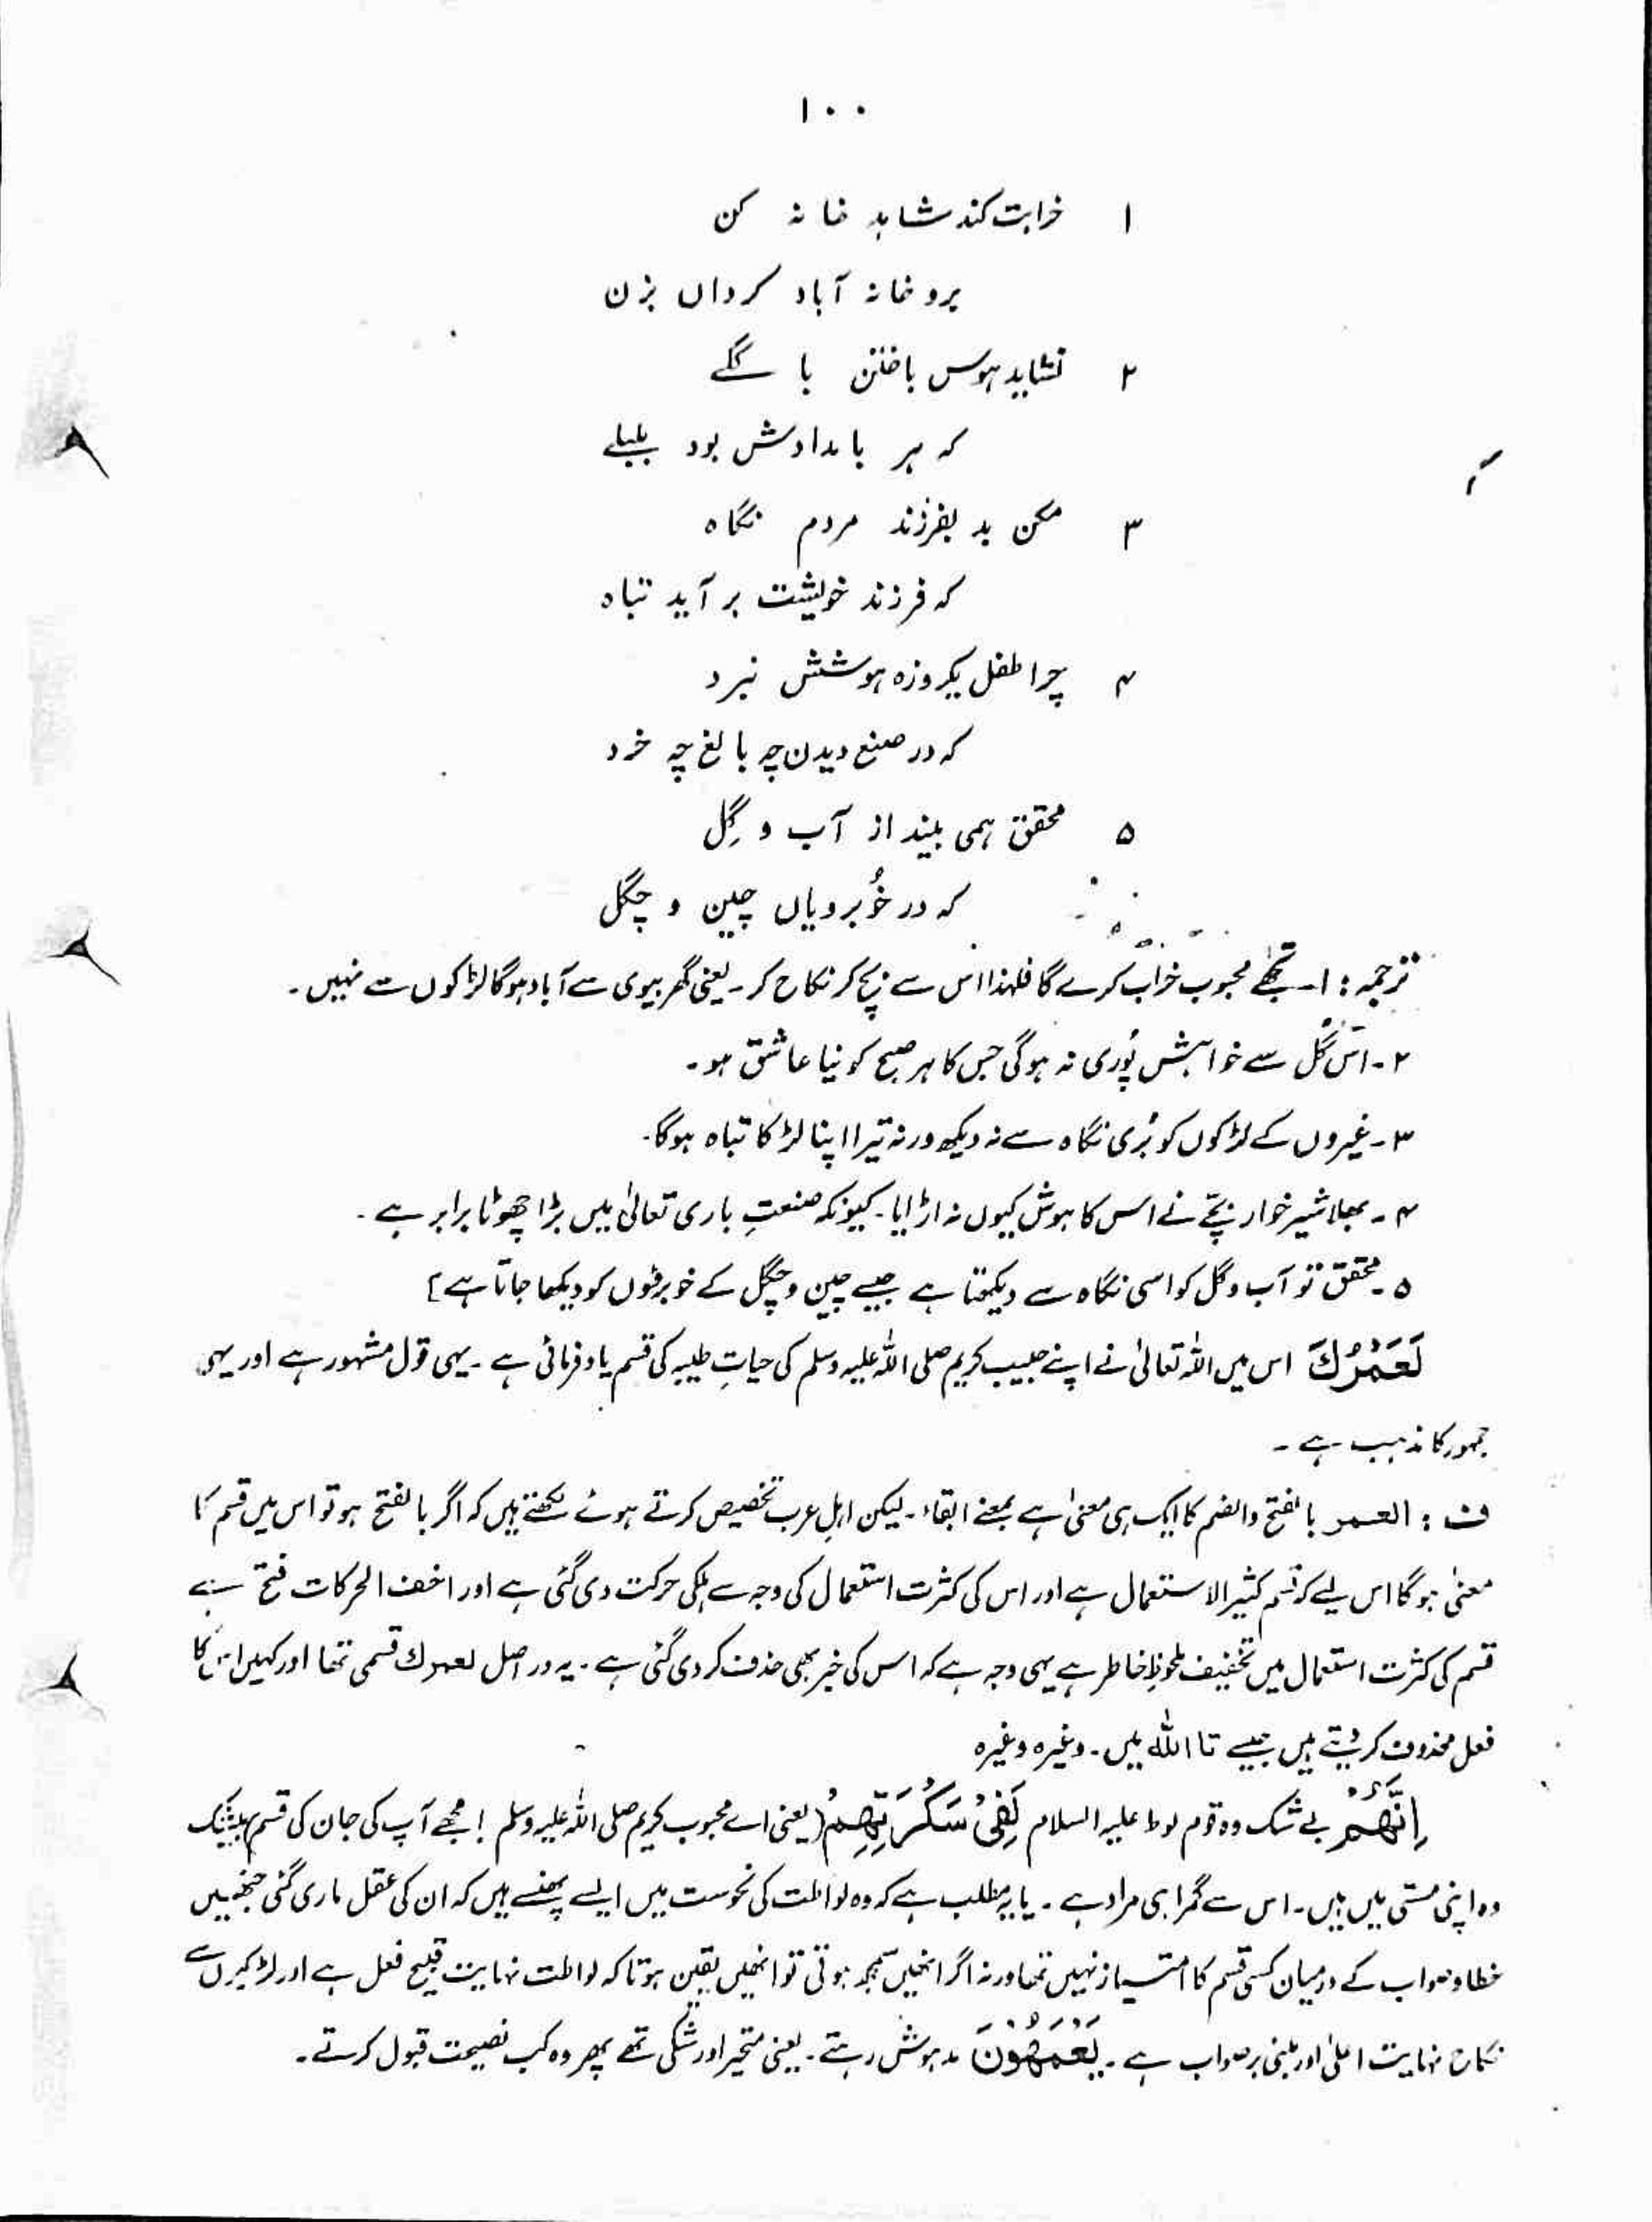 ۱۰۰
۱ خرابت کند شاہد خانہ کن
برو خانہ آباد گرداں بزن
۲ نشاید ہوس باختن با گلے
کہ ہر بامدادش بود بلبلے
۳ مکن بد بفرزند مردم نگاہ
کہ فرزند خویشت بر آید تباہ
۴ چرا طفل یکروزہ ہوشش نبرد
کہ در صنع دیدن چہ بالغ چہ خرد
۵ محقق ہمی بیند از آب و گِل
کہ در خُوبرویاں چین و چگل
ترجمہ : ۱۔ تجھے محبوب خراب کرے گا فلہذا اس سے بچ کر نکاح کر۔ یعنی گھر بیوی سے آباد ہوگا لڑکوں سے نہیں۔
۲۔ اس گُل سے خواہش پُوری نہ ہوگی جس کا ہر صبح کو نیا عاشق ہو۔
۳۔ غیروں کے لڑکوں کو بُری نگاہ سے نہ دیکھ ورنہ تیرا اپنا لڑکا تباہ ہوگا۔
۴۔ بھلا شیر خوار بچّے نے اس کا ہوش کیوں نہ اڑایا۔ کیونکہ صنعتِ باری تعالیٰ میں بڑا چھوٹا برابر ہے۔
۵۔ محقق تو آب و گل کو اسی نگاہ سے دیکھتا ہے جیسے چین و چگل کے خوبرؤوں کو دیکھا جاتا ہے]
لَعَمْرُكَ اس میں اللہ تعالیٰ نے اپنے حبیب کریم صلی اللہ علیہ وسلم کی حیاتِ طیبہ کی قسم یاد فرمائی ہے۔ یہی قول مشہور ہے اور یہی
جمہور کا مذہب ہے۔
ف : العمر بالفتح والضم کا ایک ہی معنیٰ ہے بمعنے ابقاء۔ لیکن اہلِ عرب تخصیص کرتے ہوئے لکھتے ہیں کہ اگر بالفتح ہو تو اس میں قسم کا
معنیٰ ہوگا اس لیے کہ قسم کثیر الاستعمال ہے اور اس کی کثرت استعمال کی وجہ سے ہلکی حرکت دی گئی ہے اور اخف الحرکات فتح ہے
قسم کی کثرت استعمال میں تخفیف ملحوظِ خاطر ہے یہی وجہ ہے کہ اس کی خبر بھی حذف کر دی گئی ہے۔ یہ دراصل لعمرك قسمی تھا اور کہیں اس کا
فعل محذوف کر دیتے ہیں جیسے تا اللہ میں۔ وغیرہ وغیرہ
اِنَّهُمْ بے شک وہ قوم لوط علیہ السلام لَفِیْ سَكْرَتِهِمْ (یعنی اے محبوب کریم صلی اللہ علیہ وسلم! مجھے آپ کی جان کی قسم بیشک
وہ اپنی مستی میں ہیں۔ اس سے گمراہی مراد ہے۔ یا یہ مطلب ہے کہ وہ لواطت کی نحوست میں ایسے پھنسے ہیں کہ ان کی عقل ماری گئی جنھیں
خطا و صواب کے درمیان کسی قسم کا امتیاز نہیں تھا ورنہ اگر انھیں سمجھ ہوتی تو انھیں یقین ہوتا کہ لواطت نہایت قبیح فعل ہے اور لڑکیوں سے
نکاح نہایت اعلیٰ اور مبنی بر صواب ہے۔ یَعْمَهُوْنَ مدہوش رہتے۔ یعنی متحیر اور شکی تھے پھر وہ کب نصیحت قبول کرتے۔